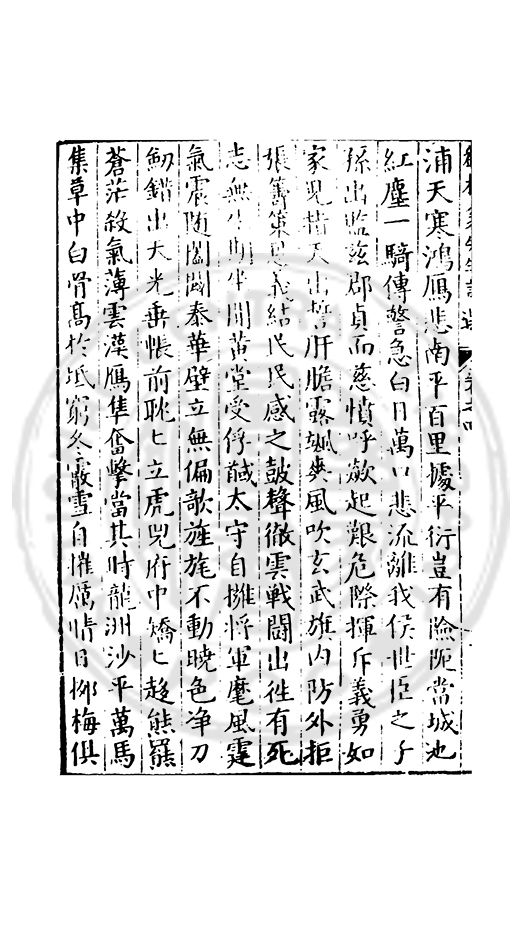 浦天寒鴻鴈悲南平百里據平衍豈有險阨當城池
紅塵一騎傳警急白日萬口悲流離我侯世臣之子
孫出監茲郡貞而慈憤呼欻起艱危際揮斥義勇如
家兒指天出誓肝膽露颯爽風吹玄武旗内防外拒
張籌策恩義結民民感之鼓聲徹雲戰鬪出徃有死
志無生期坐閒黄堂受俘馘太守自擁將軍麾風霆
氣震随闔闢泰華壁立無偏欹旌旄不動曉色净刀
劒錯出天光垂帳前眈匕立虎兕府中矯匕趍熊羆
蒼茫殺氣薄雲漠鴈隼奮擊當其時龍洲沙平萬馬
集草中白骨髙於坻窮冬霰雪自摧厲晴日栁梅俱